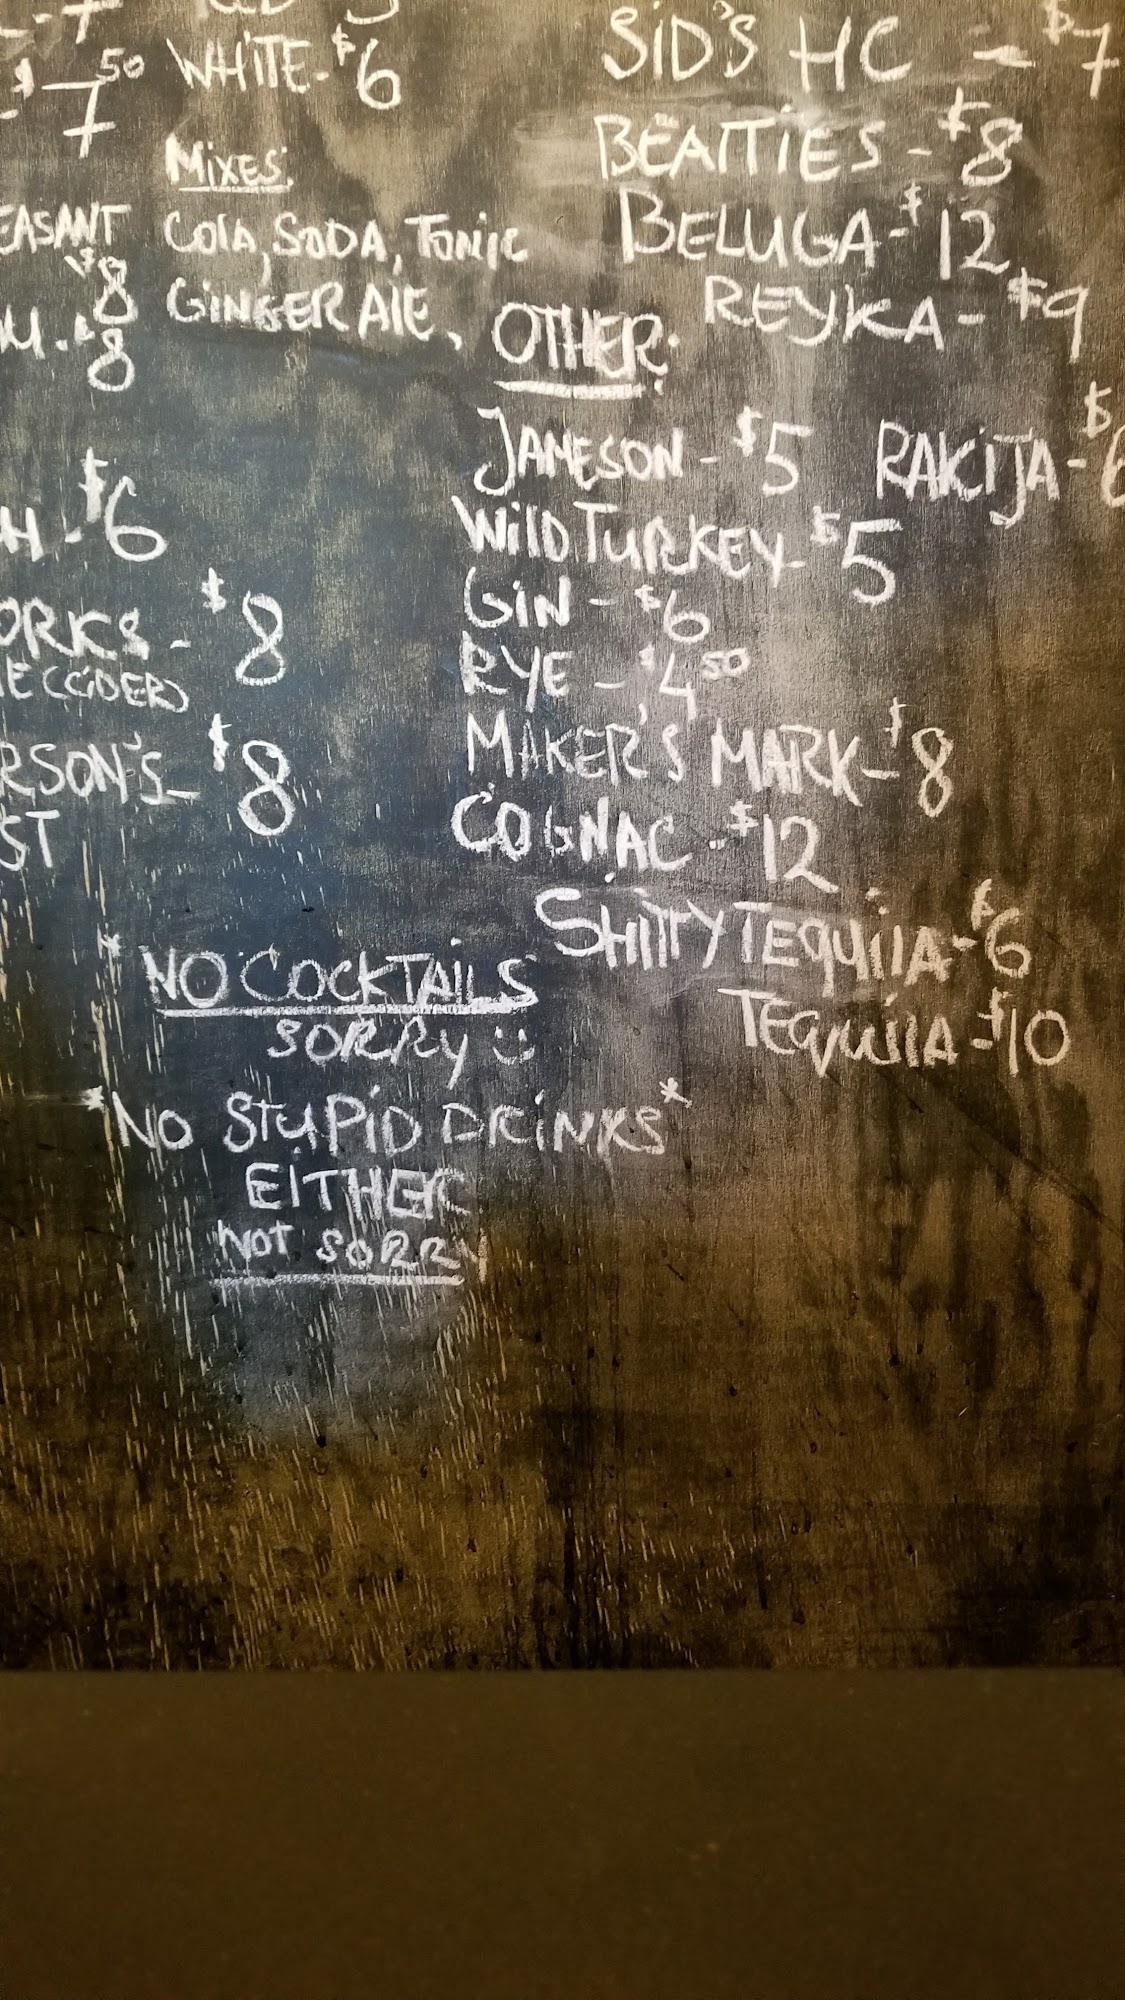 $7
50
$7
WHITE - $6
MIXES:
COLA, SODA, TONIC
GINGERALE,
EASANT
$8
M - $8
H - $6
ORKS - $8
(CIDER)
RSON'S - $8
ST
SID'S HC - $7
BEATTIES - $8
BELUGA - $12
REYKA - $9
OTHER:
JAMESON - $5
RAKIJA - $6
WILD TURKEY - $5
GIN - $6
RYE - $4 50
MAKER'S MARK - $8
COGNAC - $12
SHITTY TEQUILA - $6
TEQUILA - $10
*NO COCKTAILS
SORRY :)
*NO STUPID DRINKS*
EITHER
NOT SORRY